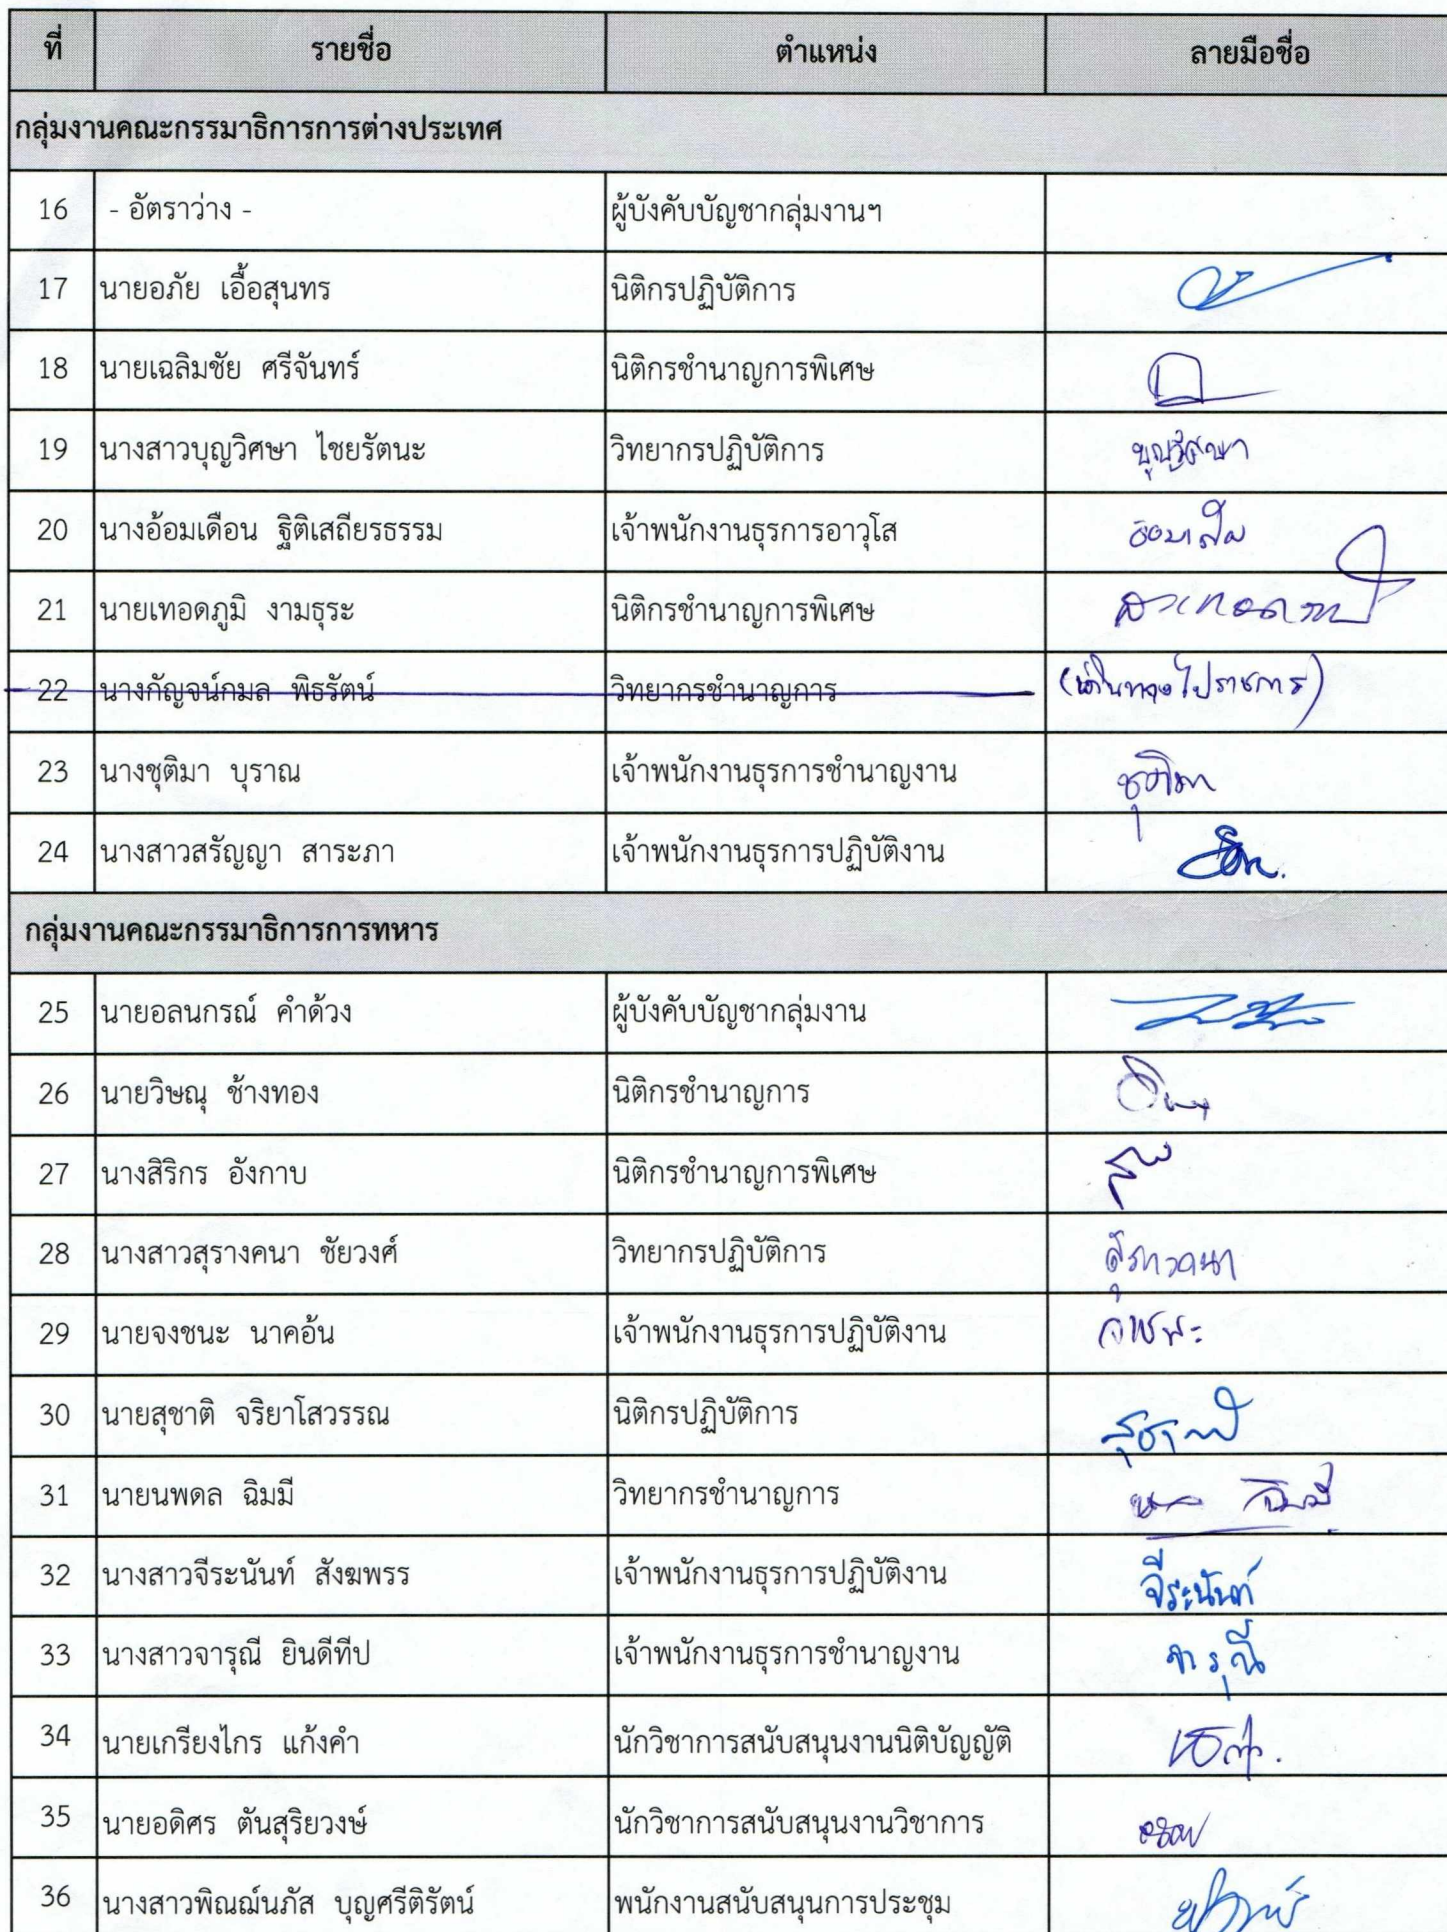 ที่ รายชื่อ ตำแหน่ง ลายมือชื่อ
กลุ่มงานคณะกรรมาธิการการต่างประเทศ
16 - อัตราว่าง - ผู้บังคับบัญชากลุ่มงานฯ
17 นายอภัย เอื้อสุนทร นิติกรปฏิบัติการ
18 นายเฉลิมชัย ศรีจันทร์ นิติกรชำนาญการพิเศษ
19 นางสาวบุญวิศษา ไชยรัตนะ วิทยากรปฏิบัติการ บุญวิศษา
20 นางอ้อมเดือน ฐิติเสถียรธรรม เจ้าพนักงานธุรการอาวุโส
21 นายเทอดภูมิ งามธุระ นิติกรชำนาญการพิเศษ
22 นางกัญจน์กมล พิธรัตน์ วิทยากรชำนาญการ (เดินทางไปราชการ)
23 นางชุติมา บุราณ เจ้าพนักงานธุรการชำนาญงาน ชุติมา
24 นางสาวสรัญญา สาระภา เจ้าพนักงานธุรการปฏิบัติงาน
กลุ่มงานคณะกรรมาธิการการทหาร
25 นายอลนกรณ์ คำด้วง ผู้บังคับบัญชากลุ่มงาน
26 นายวิษณุ ช้างทอง นิติกรชำนาญการ
27 นางสิริกร อังกาบ นิติกรชำนาญการพิเศษ
28 นางสาวสุรางคนา ชัยวงศ์ วิทยากรปฏิบัติการ สุรางคนา
29 นายจงชนะ นาคอ้น เจ้าพนักงานธุรการปฏิบัติงาน จงชนะ
30 นายสุชาติ จริยาโสวรรณ นิติกรปฏิบัติการ สุชาติ
31 นายนพดล ฉิมมี วิทยากรชำนาญการ ฉิมมี
32 นางสาวจีระนันท์ สังฆพรร เจ้าพนักงานธุรการปฏิบัติงาน จีระนันท์
33 นางสาวจารุณี ยินดีทีป เจ้าพนักงานธุรการชำนาญงาน จารุณี
34 นายเกรียงไกร แก้งคำ นักวิชาการสนับสนุนงานนิติบัญญัติ
35 นายอดิศร ตันสุริยวงษ์ นักวิชาการสนับสนุนงานวิชาการ
36 นางสาวพิณฌ์นภัส บุญศรีติรัตน์ พนักงานสนับสนุนการประชุม